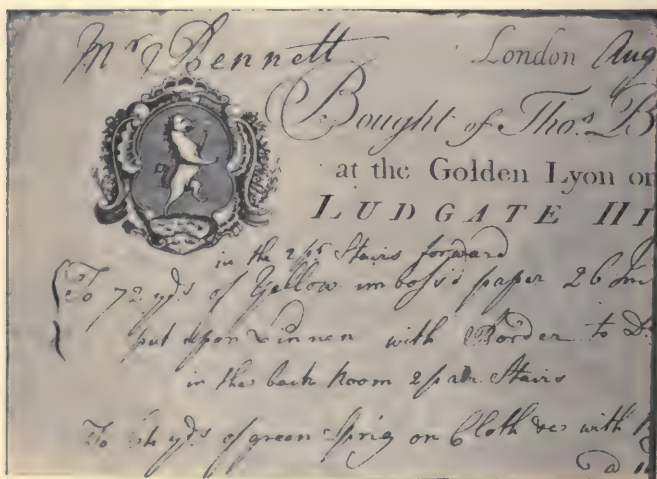 Mr Bennett London Aug
Bought of Thos. B
at the Golden Lyon on
LUDGATE HI
in the 2 pr Stairs forward
To 72 yds of Yellow imboss'd paper 26 In
put upon Linnen with Border to Do
in the back Room 2 pair Stairs
To yds of green Sprig on Cloth &c with
a